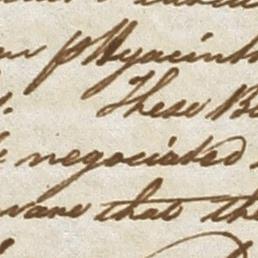 p Hyacinth
These B
negociated
ware that the